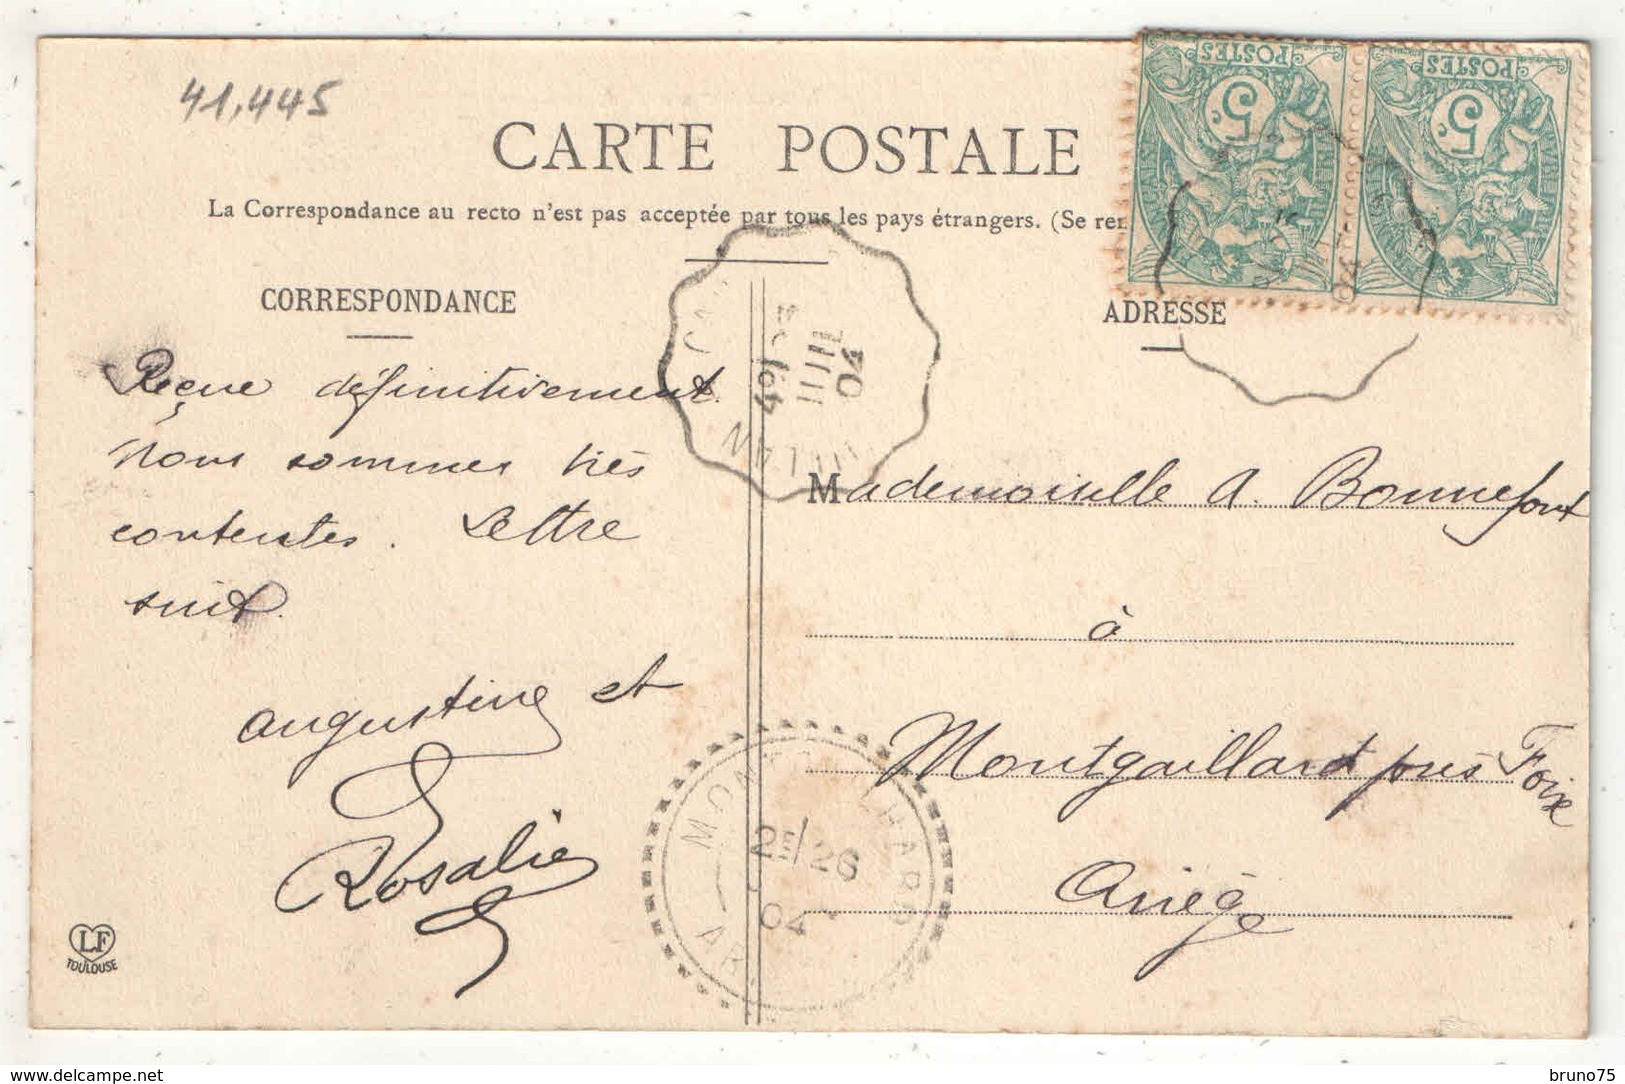 41,445
CARTE POSTALE
La Correspondance au recto n'est pas acceptée par tous les pays étrangers. (Se ren
POSTES
5c
POSTES
5c
CORRESPONDANCE
ADRESSE
Reçue définitivement.
Nous sommes très
contentes. Lettre
suit.
Augustine et
Rosalie
JUIL
04
Mademoiselle A. Bonnefont
à
Montgaillard près Foix
Ariège
26
04
LF
TOULOUSE
http://www.delcampe.net
bruno75